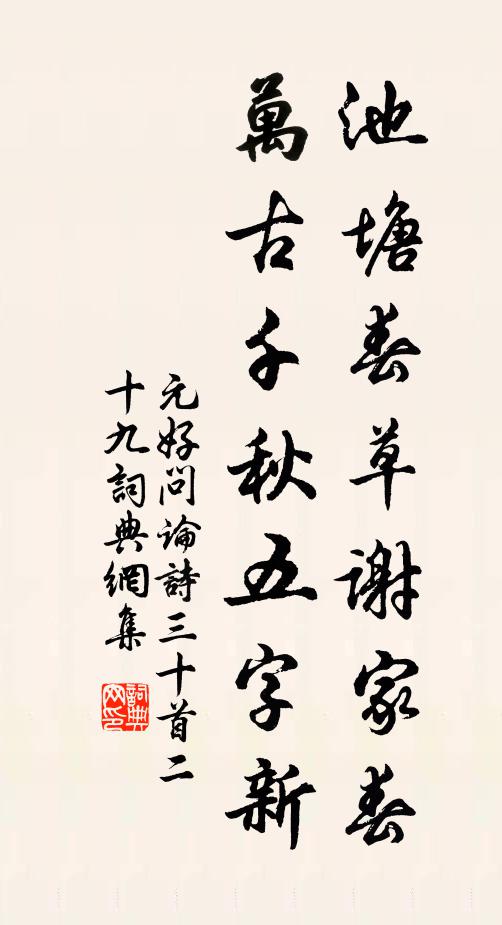 池塘春草謝家春
萬古千秋五字新
元好問論詩三十首二
十九詞典網集
詞典网印